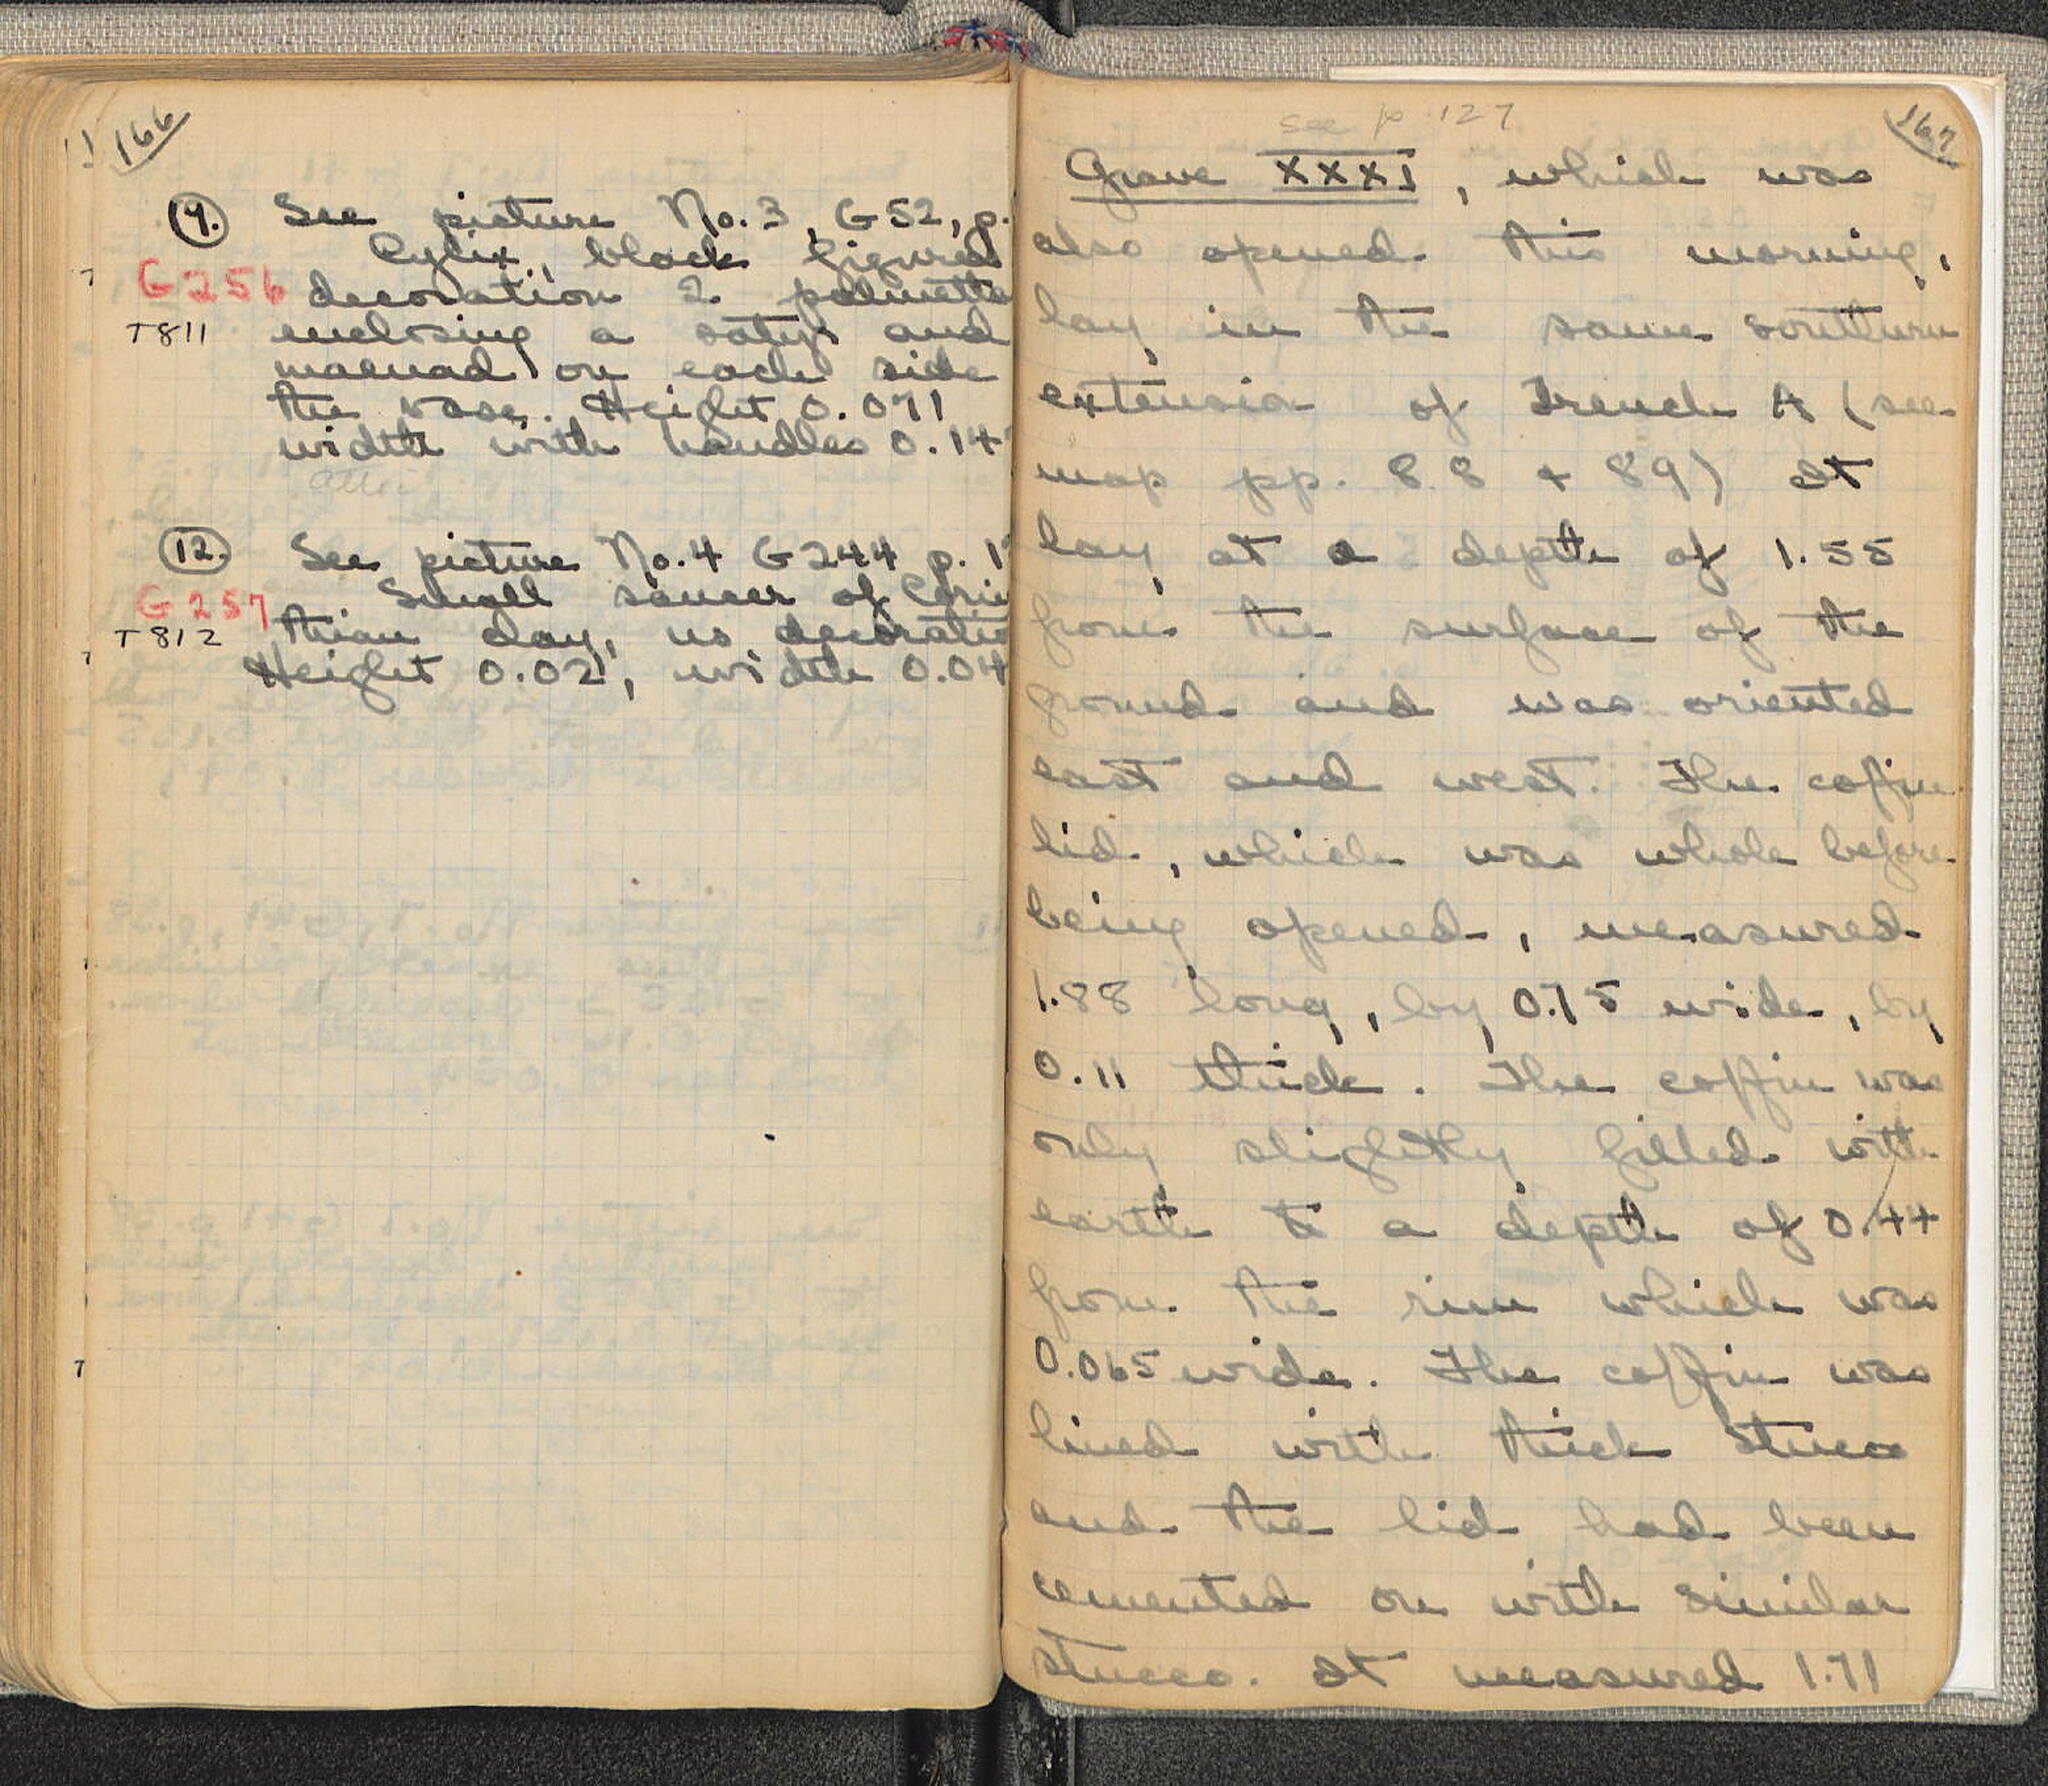 166
9. See picture No. 3, G 52, p.
Cylix, black figured
G 256 decoration 2 palmettes
T 811 enclosing a satyr and
maenad on each side
the vase. Height 0.071
width with handles 0.14
attic
12. See picture No. 4 G 244 p. 1
Small saucer of Corin
G 257 thian clay, no decoratio
T 812
Height 0.02, width 0.04
167
see p. 127
Grave XXXI, which was
also opened this morning,
lay in the same southern
extension of Trench A (see
map pp. 88 + 89) It
lay at a depth of 1.55
from the surface of the
ground and was oriented
east and west. The coffin
lid, which was whole before
being opened, measured
1.88 long, by 0.75 wide, by
0.11 thick. The coffin was
only slightly filled with
earth to a depth of 0.44
from the rim which was
0.065 wide. The coffin was
lined with thick stucco
and the lid had been
cemented on with similar
stucco. It measured 1.71